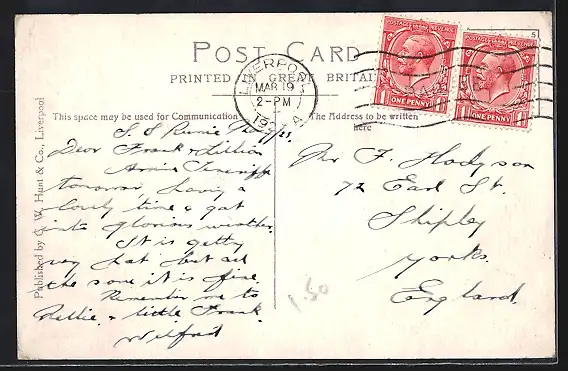 POST CARD
PRINTED IN GREAT BRITAIN
POSTAGE REVENUE
POSTAGE REVENUE
ONE PENNY
ONE PENNY
LIVERPOOL
MAR 19
2-PM
This space may be used for Communication
The Address to be written
here
Published by C. W. Hunt & Co., Liverpool
S. S.
Dear Frank & Lillian
Arrive Teneriffe
tomorrow, having a
lovely time & got
into glorious weather.
It is getting
very hot but all
the same it is fine.
Remember me to
Nellie & little Frank.
Wilfred
Mr F. Hodgson
72 Earl St.
Shipley
Yorks.
England.
1.50
5